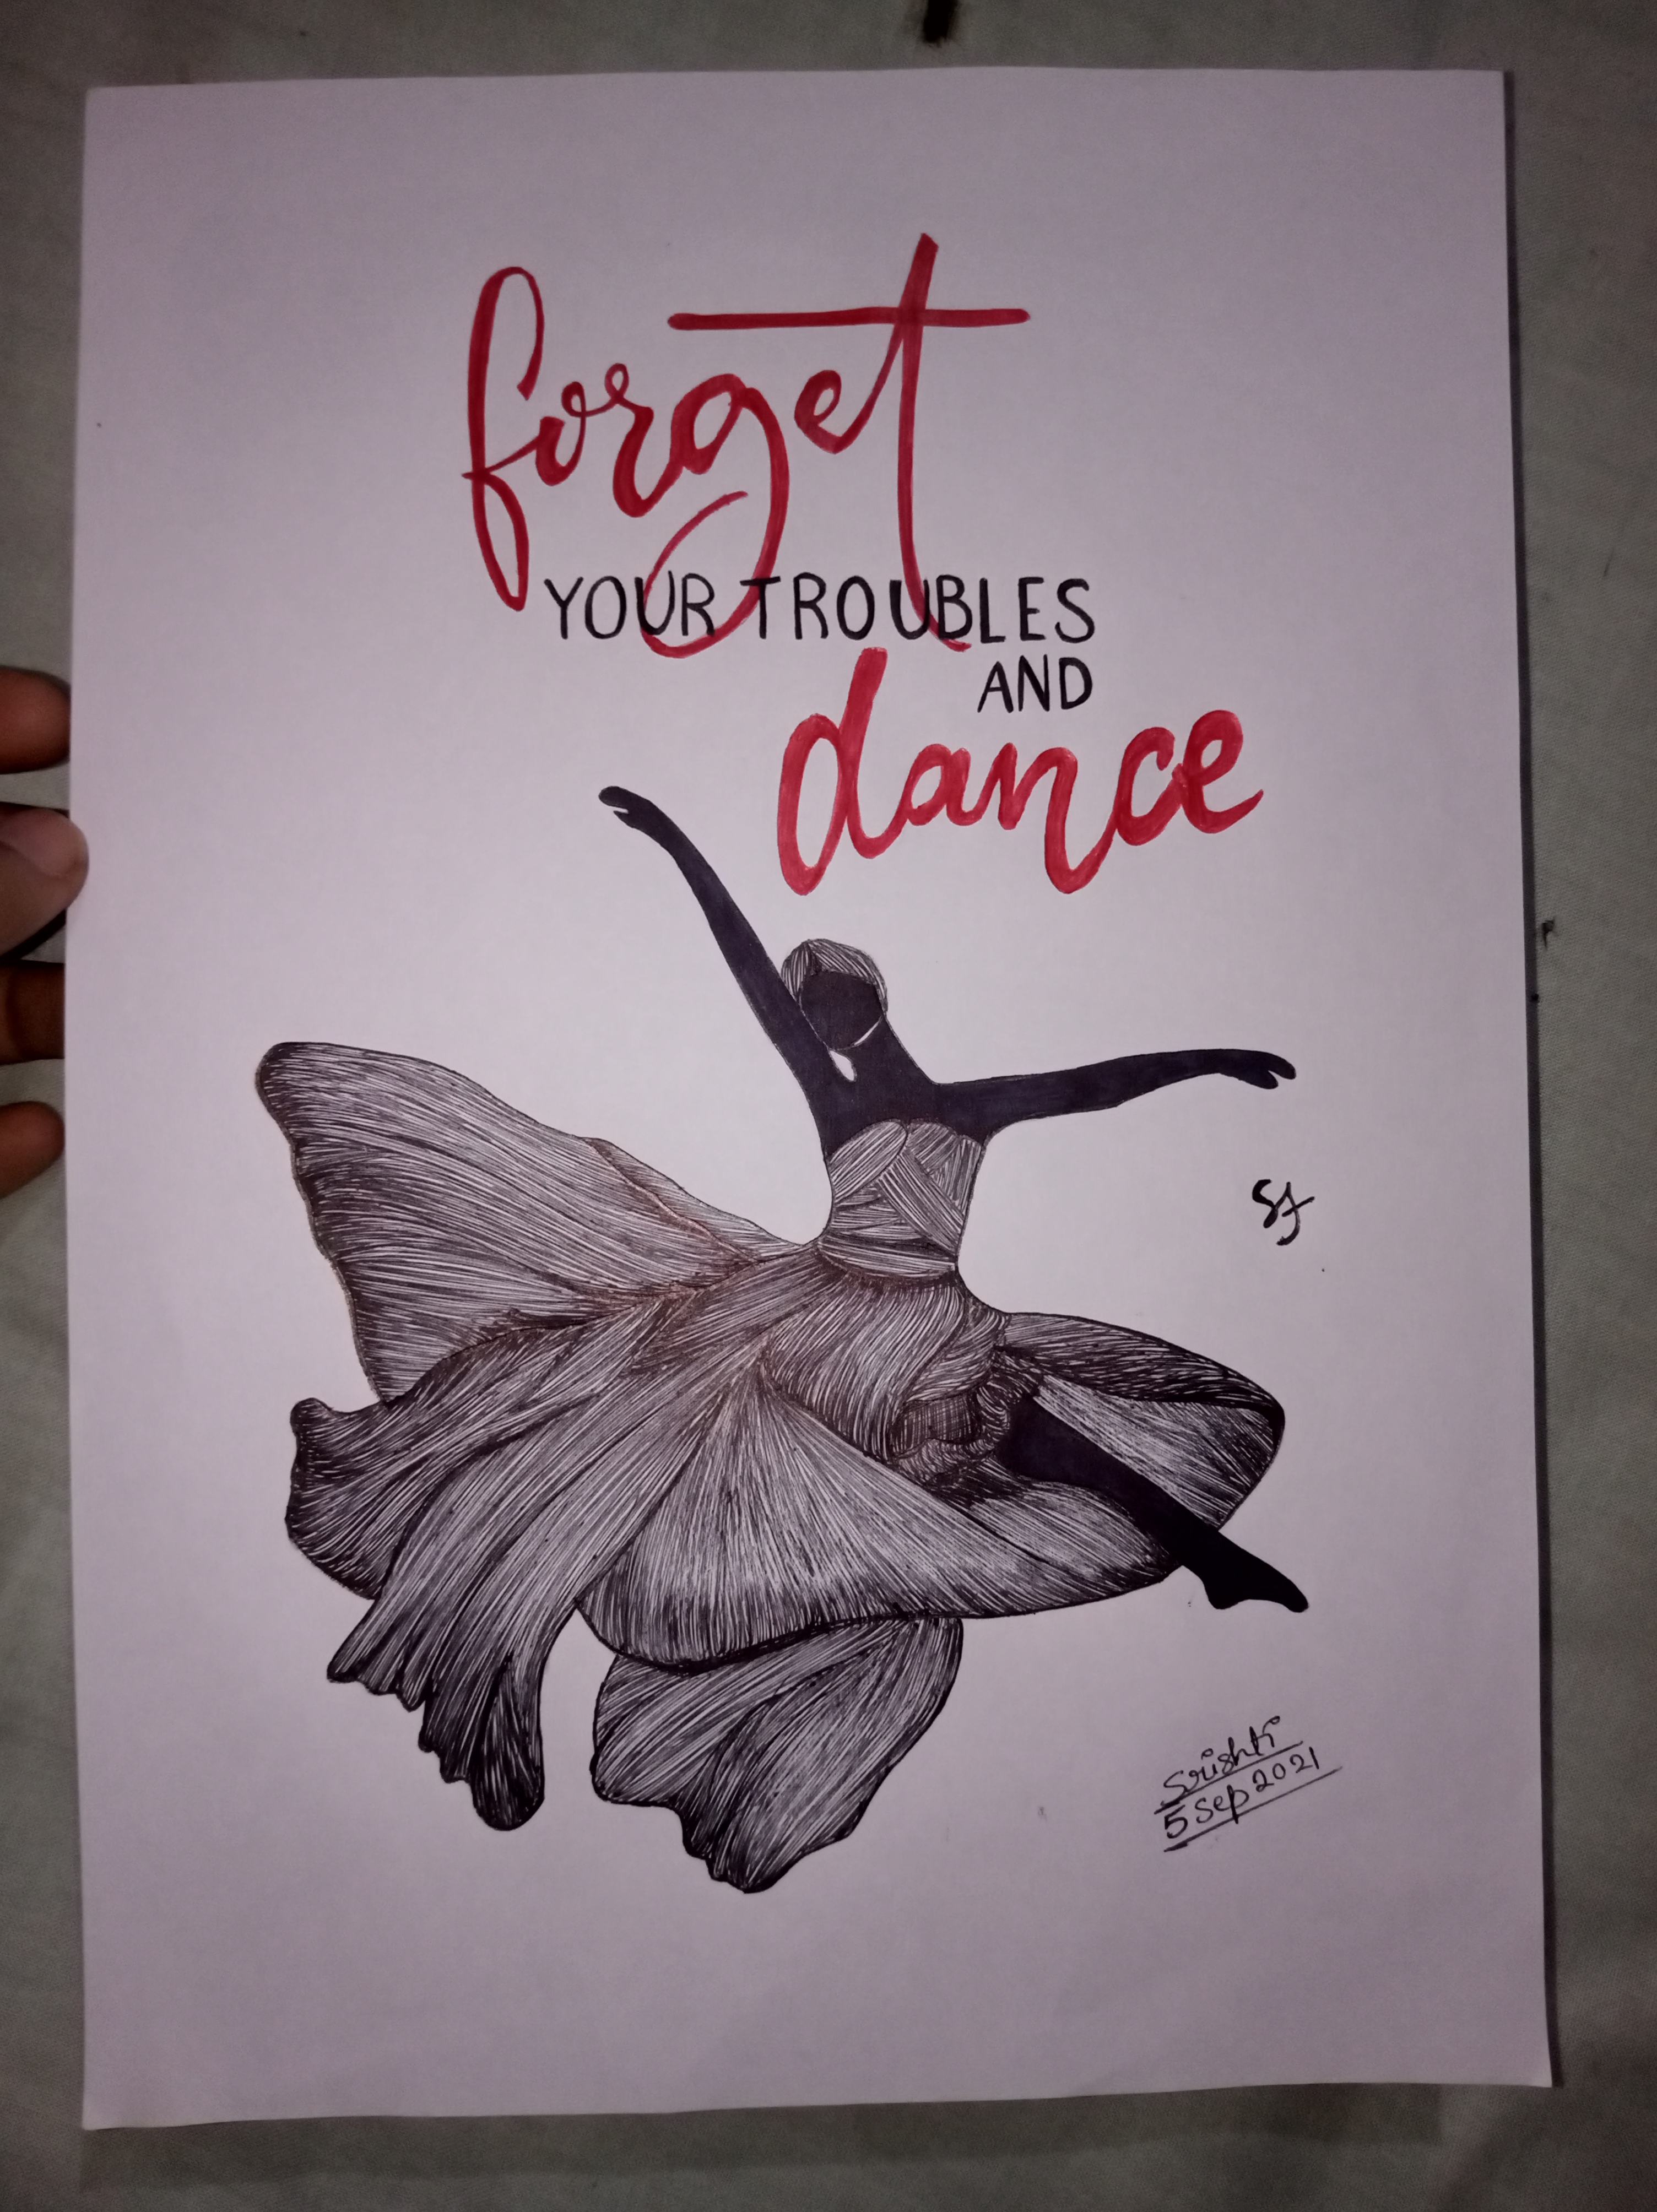 forget
YOUR TROUBLES
AND
dance
Srishti
5 Sep 2021